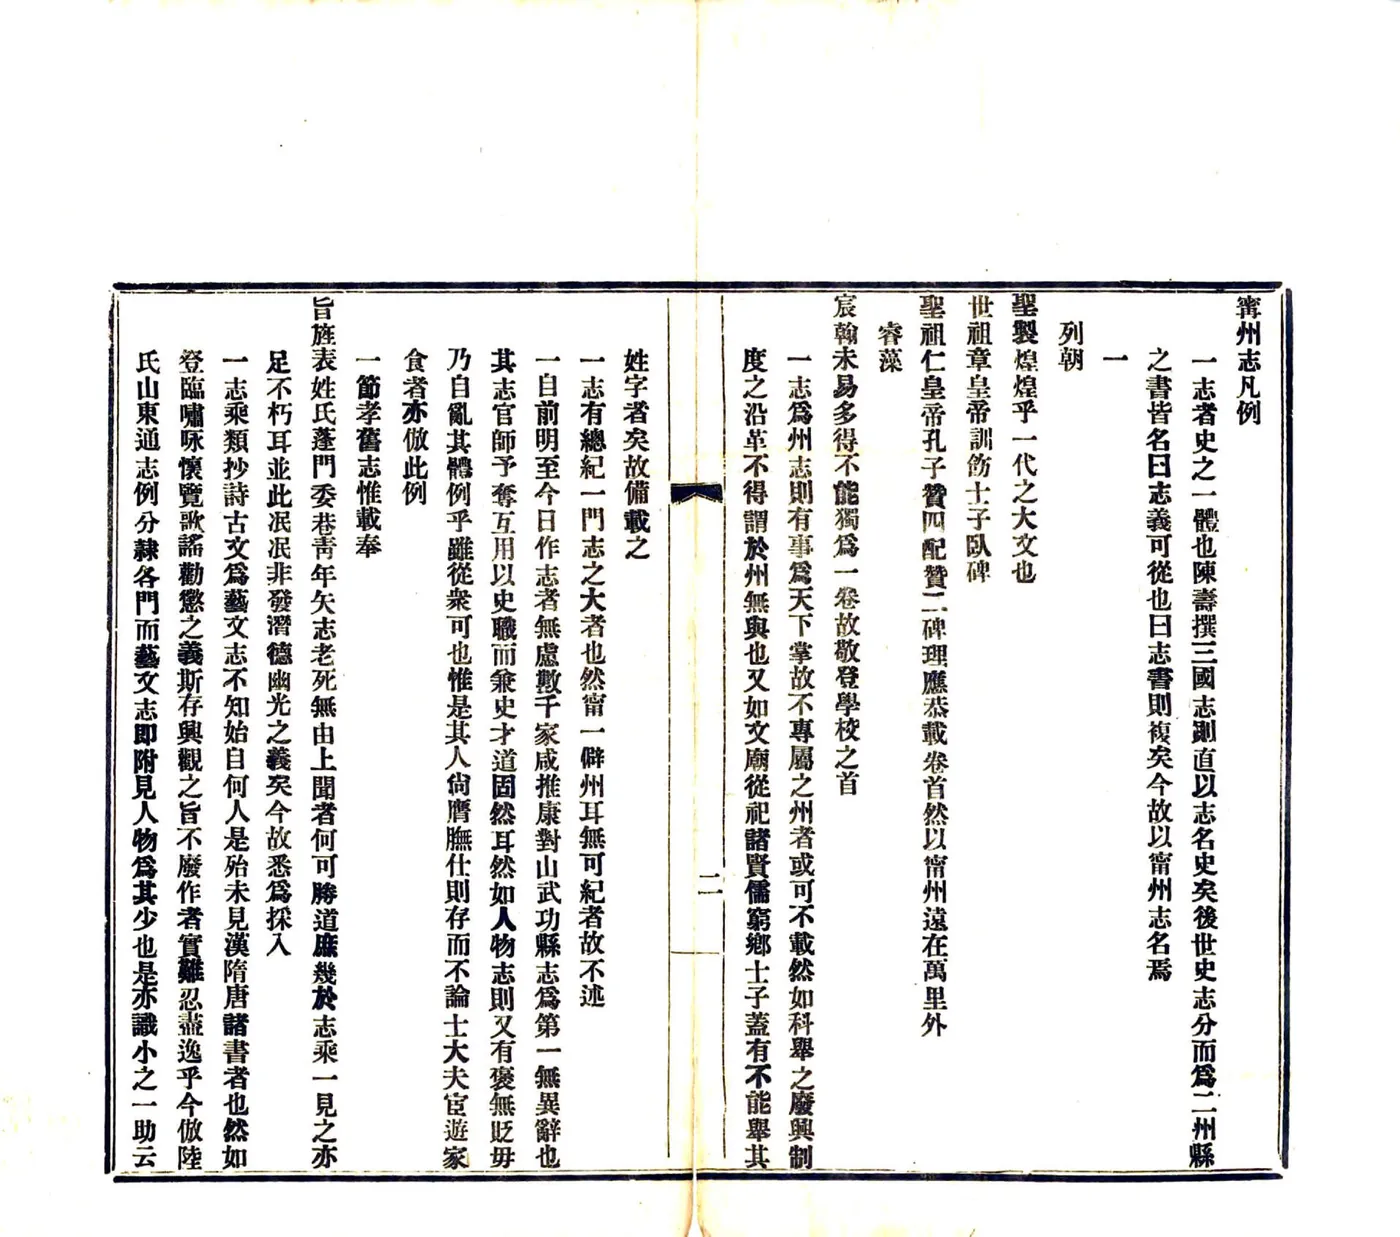 寗州志凡例
一志者史之一體也陳壽撰三國志則直以志名史矣後世史志分而爲二州縣
之書皆名曰志義可從也曰志書則複矣今故以甯州志名焉
一
列朝
聖製煌煌乎一代之大文也
世祖章皇帝訓飭士子臥碑
聖祖仁皇帝孔子贊四配贊二碑理應恭載卷首然以甯州遠在萬里外
睿藻
宸翰未易多得不能獨爲一卷故敬登學校之首
一志爲州志則有事爲天下掌故不專屬之州者或可不載然如科舉之廢興制
度之沿革不得謂於州無與也又如文廟從祀諸賢儒窮鄉士子蓋有不能舉其
二
姓字者矣故備載之
一志有總紀一門志之大者也然甯一僻州耳無可紀者故不述
一自前明至今日作志者無慮數千家咸推康對山武功縣志爲第一無異辭也
其志官師予奪互用以史職而兼史才道固然耳然如人物志則又有褒無貶毋
乃自亂其體例乎雖從衆可也惟是其人尙膺膴仕則存而不論士大夫宦遊家
食者亦倣此例
一節孝舊志惟載奉
旨旌表姓氏蓬門委巷靑年矢志老死無由上聞者何可勝道庶幾於志乘一見之亦
足不朽耳並此泯泯非發潛德幽光之義矣今故悉爲採入
一志乘類抄詩古文爲藝文志不知始自何人是殆未見漢隋唐諸書者也然如
登臨嘯咏懷覽歌謠勸懲之義斯存興觀之旨不廢作者實難忍盡逸乎今倣陸
氏山東通志例分隸各門而藝文志卽附見人物爲其少也是亦識小之一助云